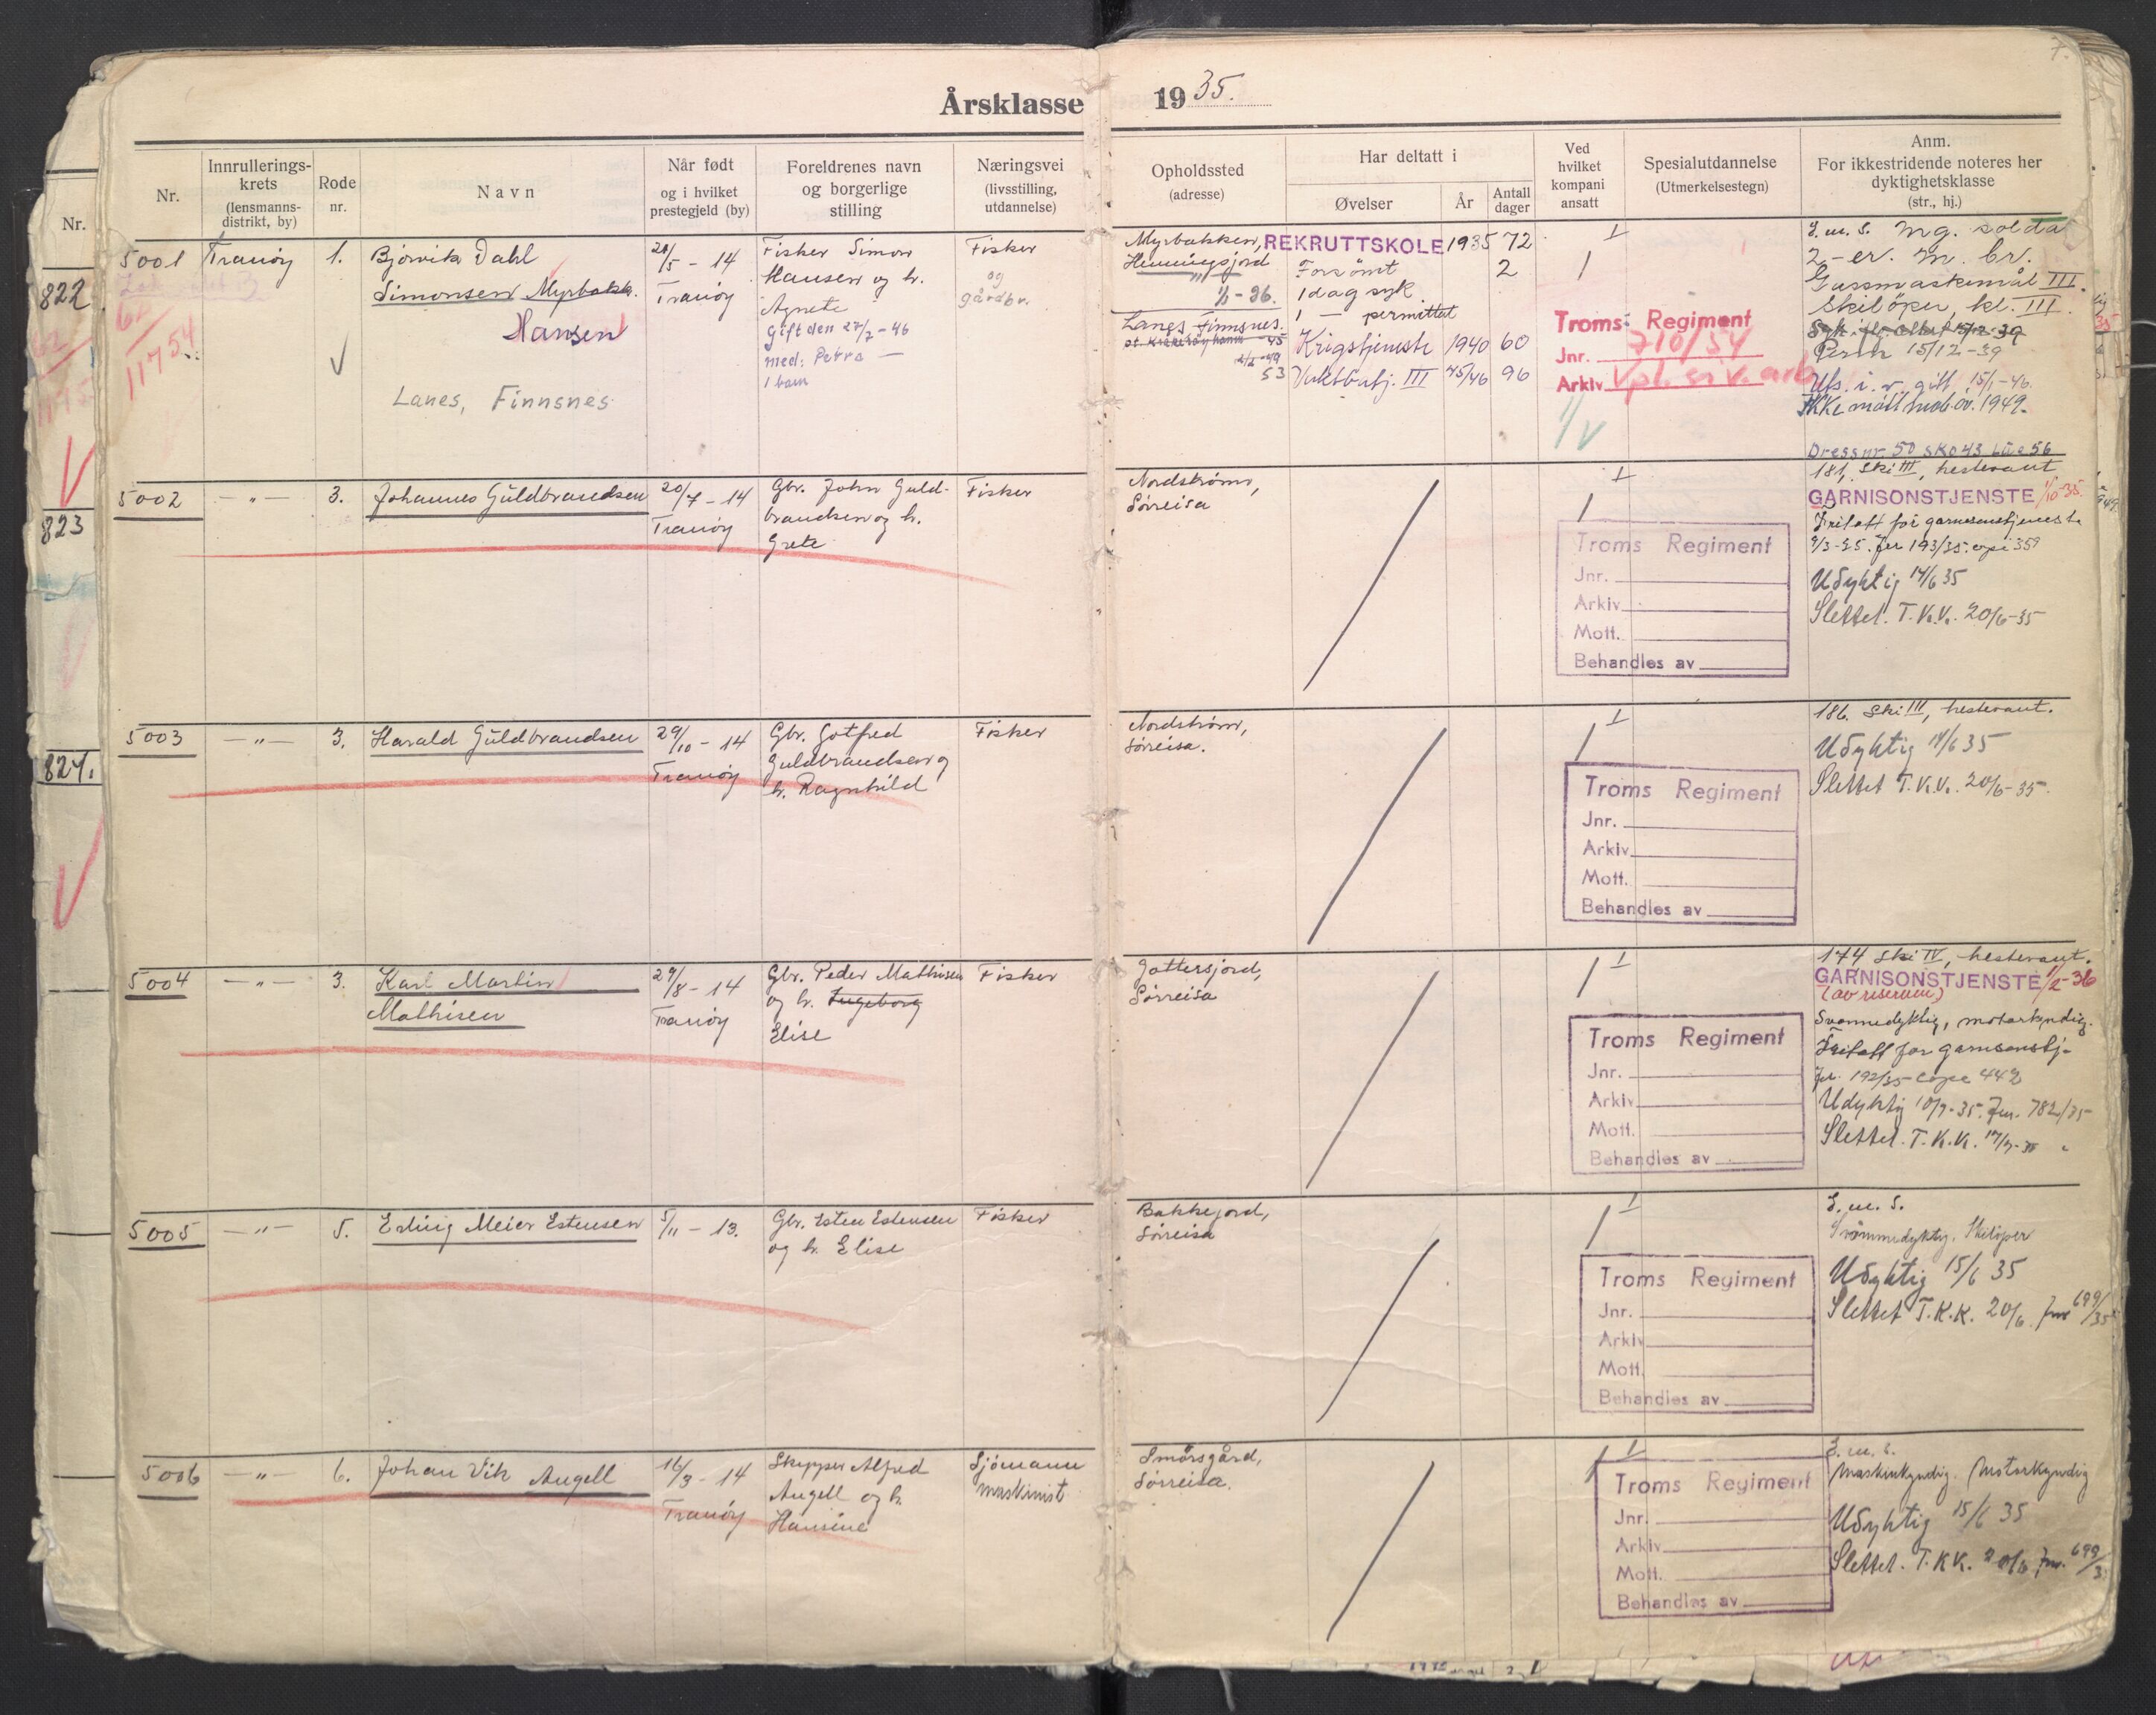 Årsklasse 1935.
7.
Nr.
822
823
824.
Nr.
Innrullerings-
krets
(lensmanns-
distrikt, by)
Rode
nr.
Navn
Når født
og i hvilket
prestegjeld (by)
Foreldrenes navn
og borgerlige
stilling
Næringsvei
(livsstilling,
utdannelse)
Opholdssted
(adresse)
Har deltatt i
Øvelser
År
Antall
dager
Ved
hvilket
kompani
ansatt
Spesialutdannelse
(Utmerkelsestegn)
Anm.
For ikkestridende noteres her
dyktighetsklasse
(str., hj.)
5001 Tranöy 1. Bjørvik Dahl
Simonsen Myrbakk.
Hansen
Lanes, Finnsnes
11754
20/5 - 14
Tranöy
Fisker Simon
Hansen og h.
Agnete
Gift den 27/7 - 46
med: Petra —
1 barn
Fisker
og
gårdbr.
Myrbakken,
Henningsjord
Lanes Finnsnes.
53
REKRUTTSKOLE 1935 72
Forsömt 2
1 dag syk
1 — permittert
Krigstjeneste 1940 60
Vaktbatj. III 45/46 96
Troms Regiment
Jnr. 710/54
Arkiv Vpl. siv. arb
S.m.S. Mg. solda
2-er. m. br.
Gassmaskemål III.
Skilöper, kl. III.
Perm 15/12-39
Uts. i. v. gitt 15/1-46.
Ikke mött mob.öv. 1949.
Dressnr. 50 sko 43 lue 56
5002 — " — 3. Johannes Guldbrandsen
20/7 - 14
Tranöy
Gbr. John Guld-
brandsen og h.
Grete
Fisker
Nordström,
Sörreisa
Troms Regiment
Jnr.
Arkiv
Mott.
Behandles av
181, Ski III, hestevant
GARNISONSTJENSTE 1/10-35.
Fritatt for garnisonstjeneste
9/3-35. Jnr 193/35. copi 359
Udyktig 14/6 35
Slettet. T.K.K. 20/6-35
5003 — " — 3. Harald Guldbrandsen
29/10 - 14
Tranöy
Gbr. Gotfred
Guldbrandsen og
h. Ragnhild
Fisker
Nordström,
Sörreisa.
Troms Regiment
Jnr.
Arkiv
Mott.
Behandles av
186. Ski III, hestevant.
Udyktig 14/6 35
Slettet T.K.K. 20/6-35.
5004 — " — 3. Karl Martin
Mathisen
29/8 - 14
Tranöy
Gbr. Peder Mathisen
og h. Ingeborg
Elise
Fisker
Gottersjord,
Sörreisa
Troms Regiment
Jnr.
Arkiv
Mott.
Behandles av
174 Ski IV, hestevant.
GARNISONSTJENSTE 1/2-36
(av reserven)
Svømmedyktig, motorkyndig.
Fritatt for garnisonstj-
Jnr. 192/35 copi 442
Udyktig 10/7-35. Jnr. 782/35
Slettet. T.K.K. 17/7-35
5005 — " — 5. Erling Meier Estensen
5/11 - 13.
Gbr. Esten Estensen
og h. Elise
Fisker
Bakkejord,
Sörreisa
Troms Regiment
Jnr.
Arkiv
Mott.
Behandles av
S.m.S.
Svömmedyktig. Skilöper
Udyktig 15/6 35
Slettet T.K.K. 20/6. Jnr 699/35
5006 — " — 6. Johan Vik Angell
16/3 - 14
Tranöy
Skipper Alfred
Angell og h.
Hansine
Sjömann
maskinist
Smörsgård,
Sörreisa.
Troms Regiment
Jnr.
Arkiv
Mott.
Behandles av
S.m.S.
Maskinkyndig. Motorkyndig
Udyktig 15/6 35
Slettet. T.K.K. 20/6 Jnr. 699/3